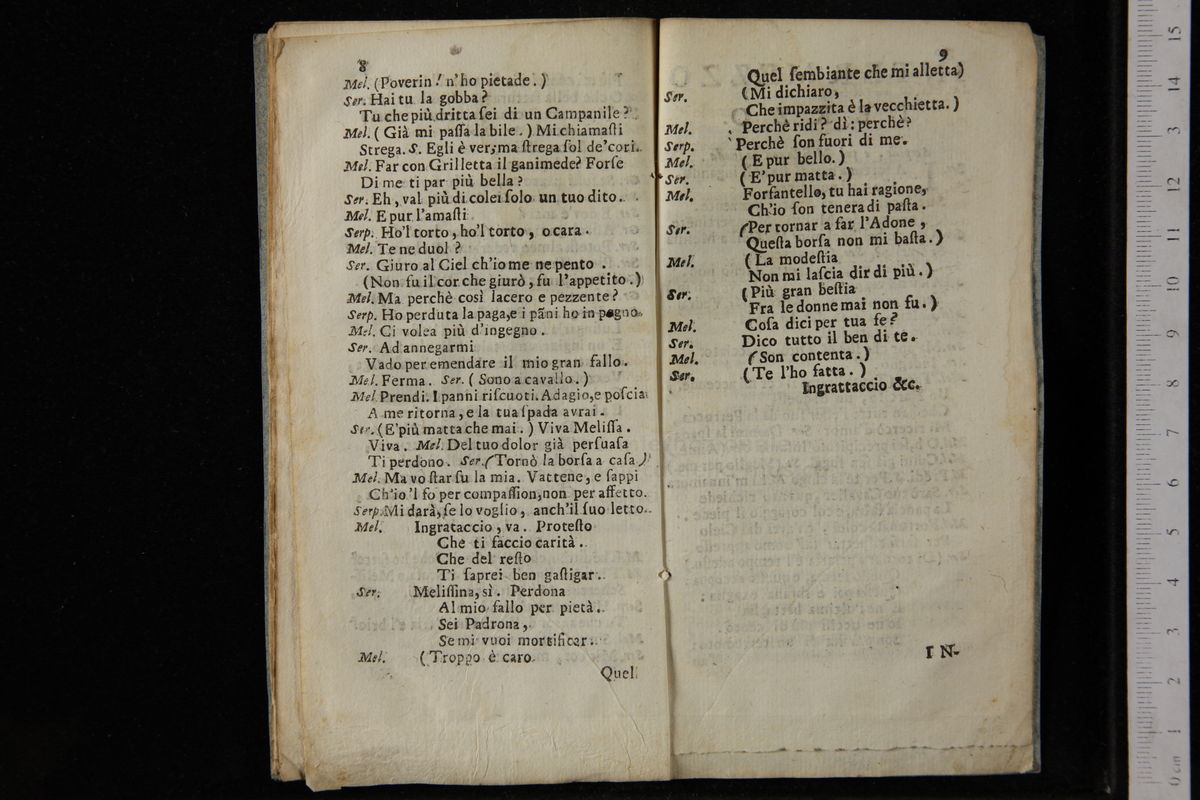 8
Mel. (Poverin! n'ho pietade.)
Ser. Hai tu la gobba?
Tu che più dritta sei di un Campanile?
Mel. (Già mi paſſa la bile.) Mi chiamaſti
Strega. S. Egli è ver, ma ſtrega ſol de'cori.
Mel. Far con Grilletta il ganimede? Forſe
Di me ti par più bella?
Ser. Eh, val più di colei ſolo un tuo dito.
Mel. E pur l'amaſti
Serp. Ho'l torto, ho'l torto, o cara.
Mel. Te ne duol?
Ser. Giuro al Ciel ch'io me ne pento.
(Non fu il cor che giurò, fu l'appetito.)
Mel. Ma perchè così lacero e pezzente?
Serp. Ho perduta la paga, e i pãni ho in pegno.
Mel. Ci volea più d'ingegno.
Ser. Ad annegarmi
Vado per emendare il mio gran fallo.
Mel. Ferma. Ser. (Sono a cavallo.)
Mel. Prendi. I panni riſcuoti. Adagio, e poſcia
A me ritorna, e la tua ſpada avrai.
Ser. (E'più matta che mai.) Viva Meliſſa.
Viva. Mel. Del tuo dolor già perſuaſa
Ti perdono. Ser. (Tornò la borſa a caſa)
Mel. Ma vo ſtar ſu la mia. Vattene, e ſappi
Ch'io'l fo per compaſſion, non per affetto.
Serp. Mi darà, ſe lo voglio, anch'il ſuo letto.
Mel. Ingrataccio, va. Proteſto
Che ti faccio carità.
Che del reſto
Ti ſaprei ben gaſtigar.
Ser. Meliſſina, sì. Perdona
Al mio fallo per pietà.
Sei Padrona,
Se mi vuoi mortificar.
Mel. (Troppo è caro
Quel
9
Quel ſembiante che mi alletta)
Ser. (Mi dichiaro,
Che impazzita è la vecchietta.)
Mel. Perchè ridi? dì: perchè?
Serp. Perchè ſon fuori di me.
Mel. (E pur bello.)
Ser. (E'pur matta.)
Mel. Forfantello, tu hai ragione,
Ch'io ſon tenera di paſta.
Ser. (Per tornar a far l'Adone,
Queſta borſa non mi baſta.)
Mel. (La modeſtia
Non mi laſcia dir di più.)
Ser. (Più gran beſtia
Fra le donne mai non fu.)
Mel. Coſa dici per tua fe?
Ser. Dico tutto il ben di te.
Mel. (Son contenta.)
Ser. (Te l'ho fatta.)
Ingrattaccio &c.
IN-
15
14
13
12
11
10
9
8
7
6
5
4
3
2
1
0 cm